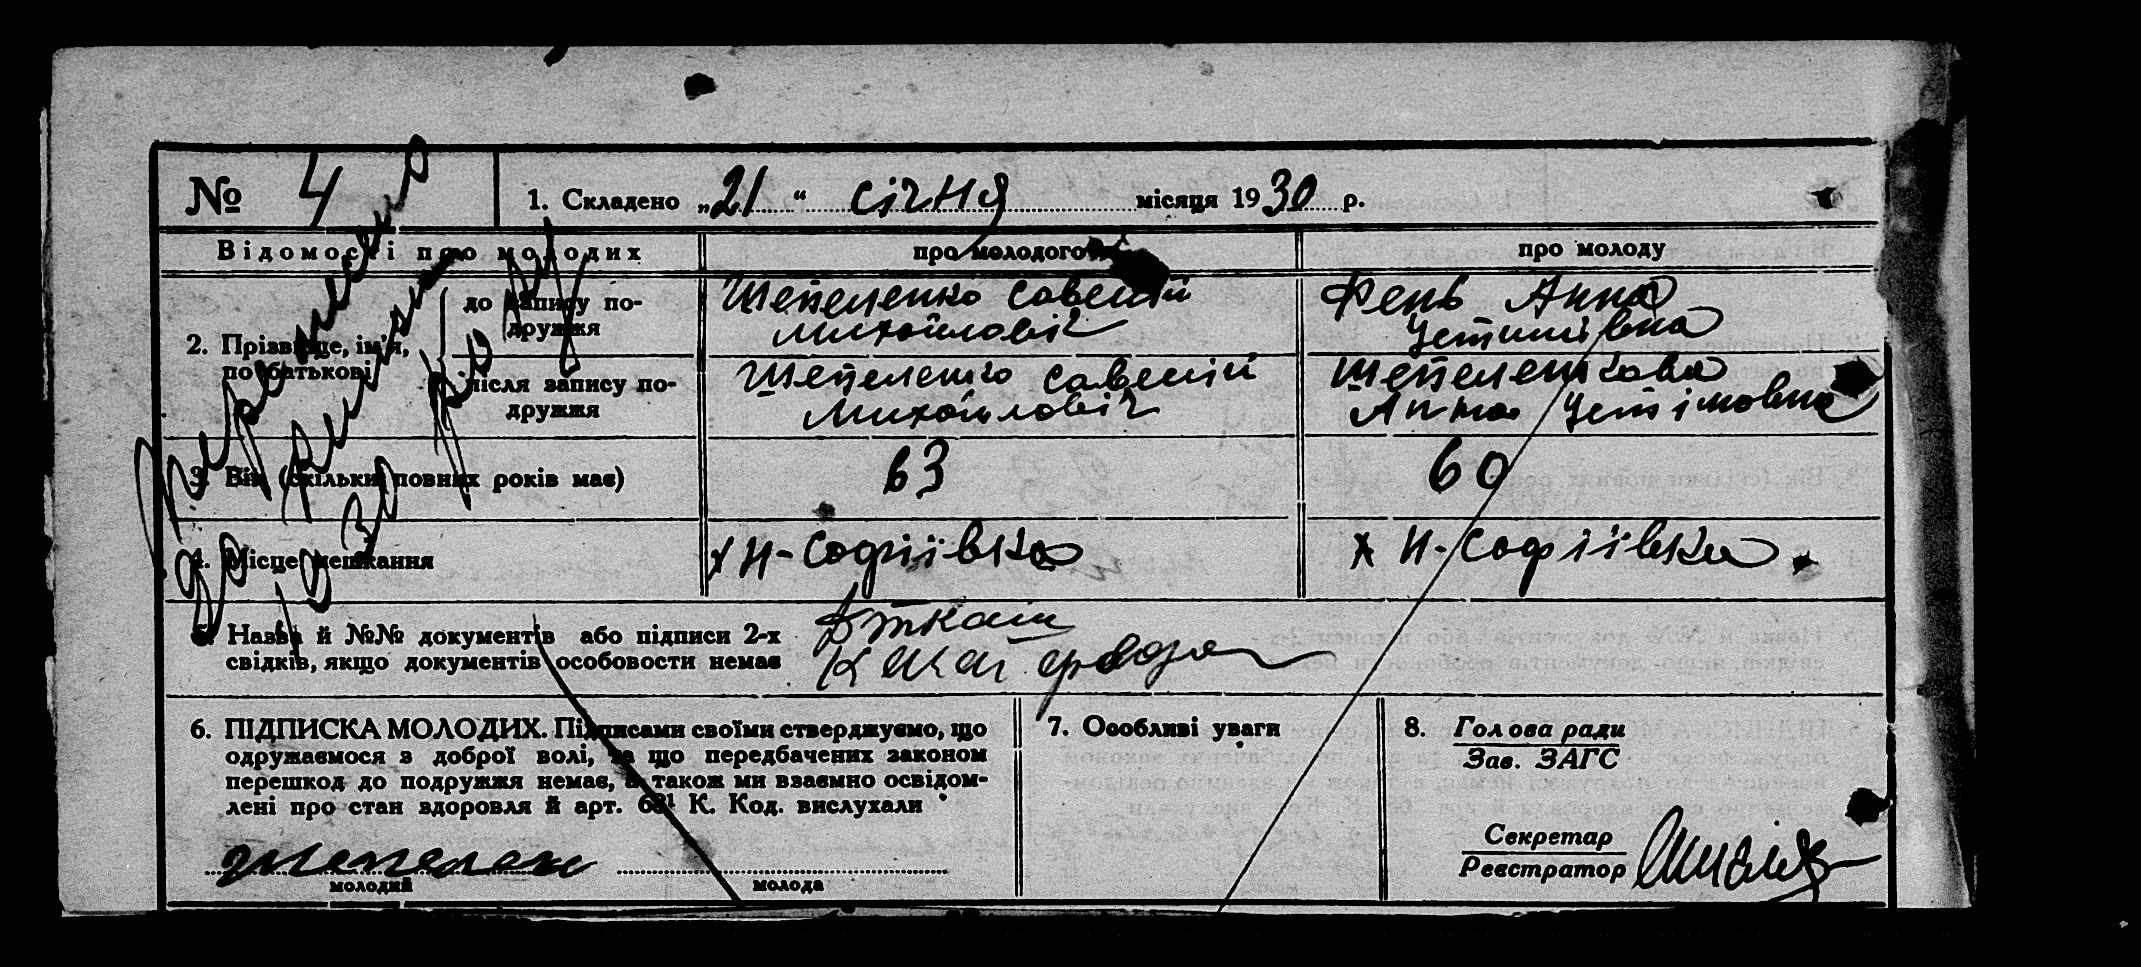 № 4
1. Складено „21“ січня місяця 1930 р.
Відомості про молодих
про молодого
про молоду
2. Прізвище, ім'я, по батькові
до запису по-
дружжя
Шепеленко Савелій
Михайловіч
Фень Анна
Устимівна
після запису по-
дружжя
Шепеленко Савелій
Михайловіч
Шепеленкова
Анна Устімовна
3. Вік (скільки повних років має)
63
60
4. Місце мешкання
х Н-Софіївка
х Н-Софіївка
5. Назва й №№ документів або підписи 2-х
свідків, якщо документів особовости немає
6. ПІДПИСКА МОЛОДИХ. Підписами своїми стверджуємо, що
одружаємося з доброї волі, та що передбачених законом
перешкод до подружжя немає, а також ми взаємно освідом-
лені про стан здоровля й арт. 68¹ К. Код. вислухали
молодий
молода
7. Особливі уваги
8. Голова ради
Зав. ЗАГС
Секретар
Реєстратор